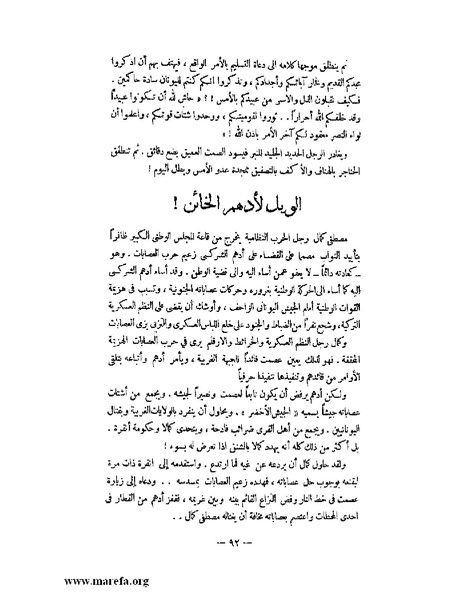 ثم ينطلق موجها كلامه الى دعاة التسليم بالأمر الواقع ، فيهتف بهم أن اذكروا
مجدكم القديم وفخار آبائكم وأجدادكم ، وتذكروا انكم كنتم لليونان سادة حاكمين .
فكيف تقبلون الذل والاسر من عبيدكم بالأمس ! ? « حاش لله أن تكونوا عبيداً
وقد خلقكم الله أحراراً . . ثوروا لقوميتكم ، ووحدوا شتات قوتكم ، واعلموا أن
لواء النصر معقود لكم آخر الأمر باذن الله ! »
ويغادر الرجل الحديد المنبر فيسود الصمت العميق بضع دقائق . ثم تنطلق
الحناجر بالهتاف والأكف بالتصفيق ممجدة عدو الأمس وبطل اليوم !
الويل لأدهم الخائن !
مصطفى كمال رجل الحرب النظامية يخرج من قاعة المجلس الوطني الكبير ظافراً
بتأييد النواب مصمما على القضاء على أدهم الشركسي زعيم حرب العصابات . وهو
ــ كعادته دائماً ــ لا يعفو عمن أساء اليه والى قضية الوطن . وقد أساء أدهم الشركسي
اليه كما أساء الى الحركة الوطنية بغروره وحركات عصاباته الجنونية ، وتسبب في هزيمة
القوات الوطنية أمام الجيش اليوناني الزاحف ، وأوشك أن يقضى على النظم العسكرية
التركية ، وشجع نفراً من الضباط والجنود على خلع اللباس العسكرى والتزيى بزى العصابات
وكمال رجل النظم العسكرية والخرائط والارقام يرى في حرب العصابات الهزيمة
المحققة . فهو لذلك يعين عصمت قائداً للجبهة الغربية ، ويأمر أدهم وأتباعه بتلقى
الأوامر من قائدهم وتنفيذها تنفيذا حرفياً
ولكن أدهم يرفض أن يكون تابعاً لعصمت ونصيراً لجيشه . ويجمع من أشتات
عصاباته جيشاً يسميه « الجيش الأخضر » . ويحاول أن ينفرد بالولايات الغربية وبقتال
اليونانيين . ويجمع من أهل القرى ضرائب فادحة ، ويتحدى كمالا وحكومة أنقرة .
بل أكثر من ذلك كله أنه يهدد كمالا بالشنق اذا تعرض له بسوء !
ولقد حاول كمال أن يردعه عن غيه فما ارتدع . واستقدمه إلى أنقرة ذات مرة
ليقنعه بوجوب حل عصاباته ، فهدده زعيم العصابات بمسدسه . . ودعاه إلى زيارة
عصمت في خط النار وفض النزاع القائم بينه وبين غريمه ، فقفز أدهم من القطار في
احدى المحطات واعتصم بعصاباته مخافة أن يغتاله مصطفى كمال . .
ــ ٩٢ ــ
www.marefa.org